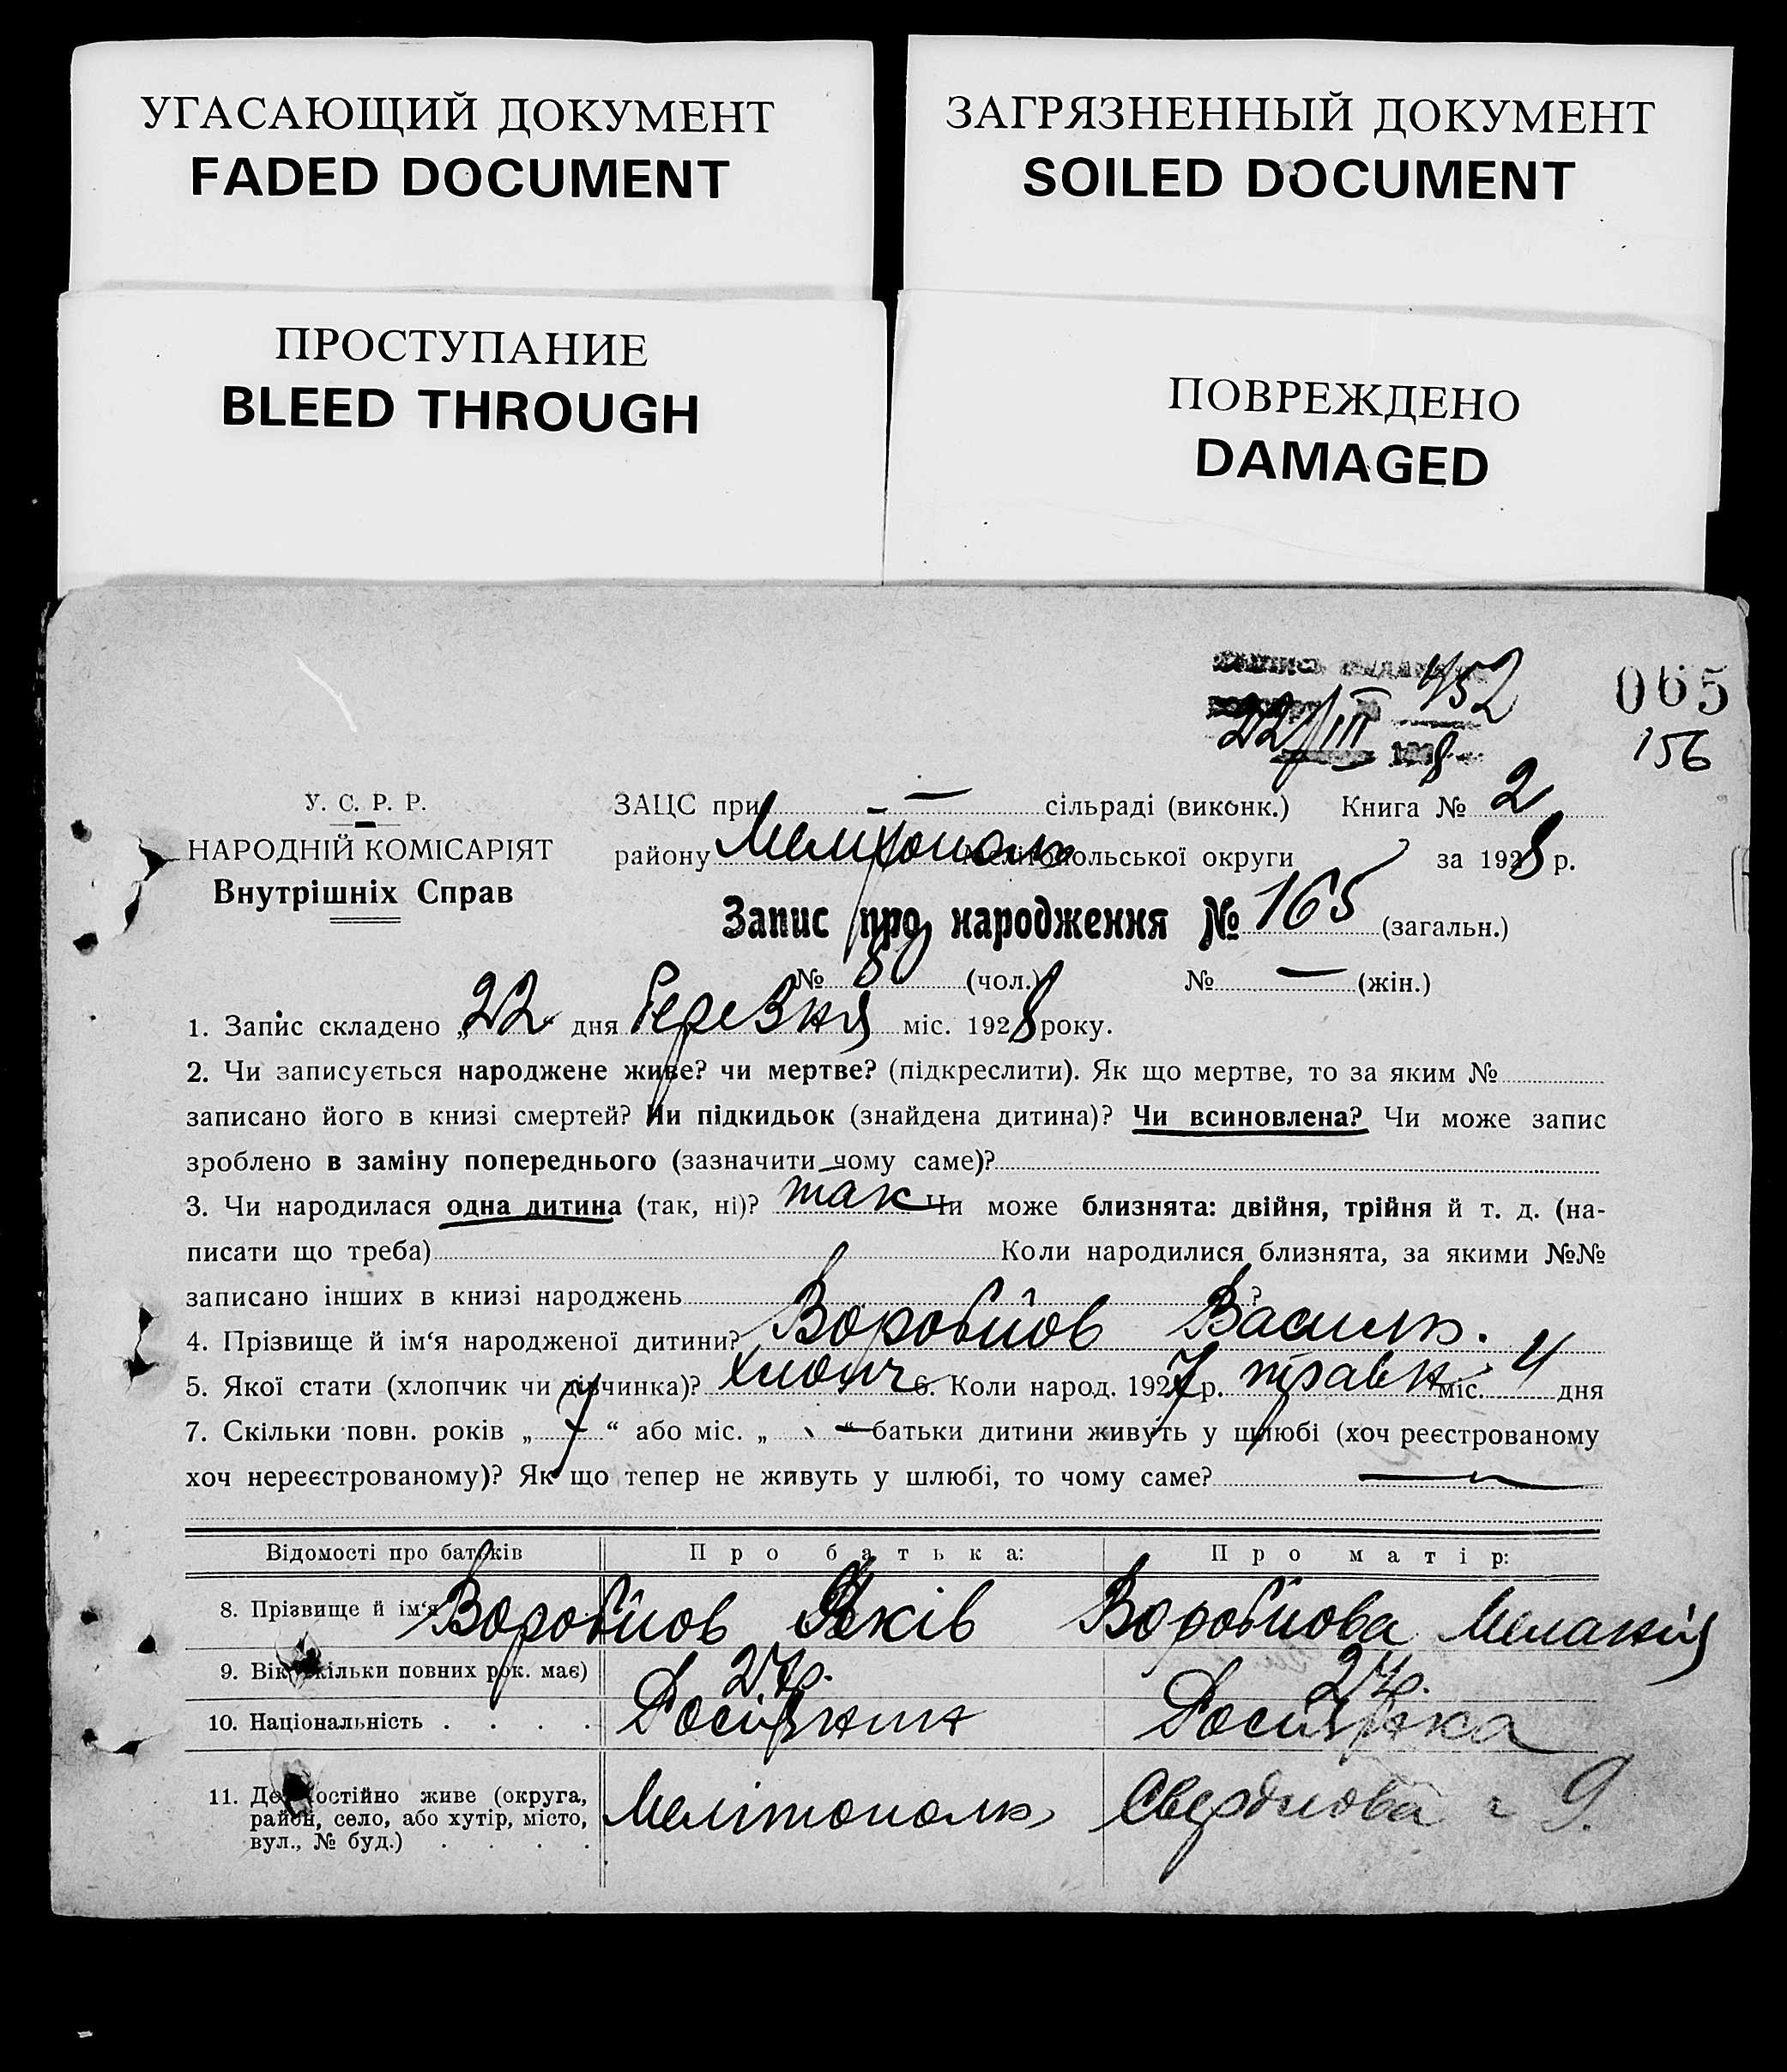 УГАСАЮЩИЙ ДОКУМЕНТ
FADED DOCUMENT
ЗАГРЯЗНЕННЫЙ ДОКУМЕНТ
SOILED DOCUMENT
ПРОСТУПАНИЕ
BLEED THROUGH
ПОВРЕЖДЕНО
DAMAGED
452
22/III 8
065
156
У. С. Р. Р.
НАРОДНІЙ КОМІСАРІЯТ
Внутрішніх Справ
ЗАЦС при — сільраді (виконк.) Книга № 2
району Мелітополь Мелітопольської округи за 1928 р.
Запис про народження № 165 (загальн.)
№ 89 (чол.) № — (жін.)
1. Запис складено „22 дня Березня міс. 1928 року.
2. Чи записується народжене живе? чи мертве? (підкреслити). Як що мертве, то за яким №
записано його в книзі смертей? Чи підкидьок (знайдена дитина)? Чи всиновлена? Чи може запис
зроблено в заміну попереднього (зазначити чому саме)?
3. Чи народилася одна дитина (так, ні)? так Чи може близнята: двійня, трійня й т. д. (на-
писати що треба) Коли народилися близнята, за якими №№
записано інших в книзі народжень ?
4. Прізвище й ім‘я народженої дитини? Воробйов Василь.
5. Якої стати (хлопчик чи дівчинка)? хлопч 6. Коли народ. 1927 р. травня міс. 4 дня
7. Скільки повн. років „ 7 “ або міс. „ — “ батьки дитини живуть у шлюбі (хоч реєстрованому
хоч нереєстрованому)? Як що тепер не живуть у шлюбі, то чому саме? —
Відомості про батьків Про батька: Про матір:
8. Прізвище й ім‘я Воробйов Яків Воробйова Меланія
9. Вік (скільки повних рок. має) 27р. 27р.
10. Національність . . . . Росіянин Росіянка
11. Де постійно живе (округа,
район, село, або хутір, місто,
вул., № буд.) . . . .
Мелітополь Свердлова 9.